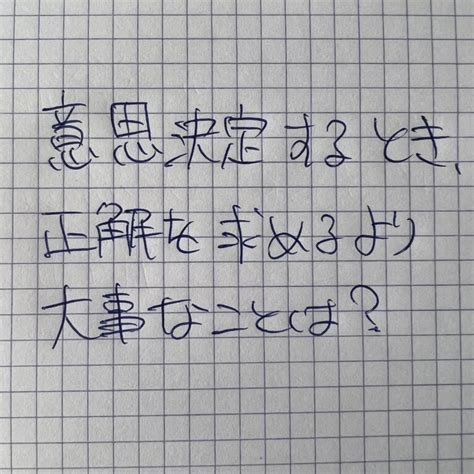 意思決定するとき、
正解を求めるより
大事なことは？